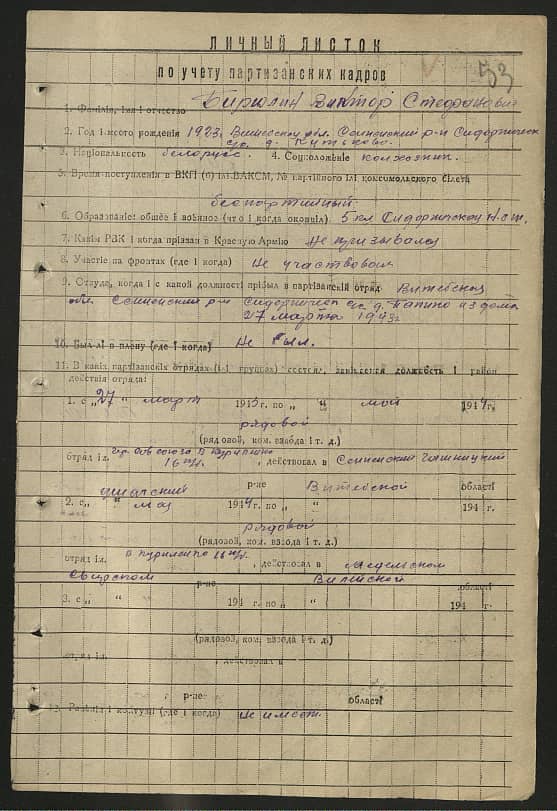 ЛИЧНЫЙ ЛИСТОК
по учету партизанских кадров
53
1. Фамілія, імя і отчество Бирюлин Виктор Стефанович
2. Год і место рождения 1923, Витебская обл. Сенненский р-н Сидорпичск
с/с д.
3. Національность белорус. 4. Соцположение колхозник.
5. Время поступления в ВКП (б) ілі ВЛКСМ, № партійного ілі комсомольского білета
беспартийный
6. Образованіе: общее і военное (что і когда окончіл) 5 кл
7. Какім РВК і когда прізван в Красную Армію Не призывался
8. Участіе на фронтах (где і когда) Не участвовал
9. Откуда, когда і с какой должності прібыл в партізанскій отряд Витебская
обл. Сенненский р-н с/с д. Папино из дома
27 марта 1943г
10. Был лі в плену (где і когда) Не был.
11. В какіх партізанскіх отрядах (ілі группах) состоял, занімаемая должность і район
действія отряда:
1. с „27“ март 1943 г. по „ “ май 1944 г.
рядовой
(рядовой, ком. взвода і т. д.)
отряд ім. , действовал в Сенненский Чашницкий
ушачский р-не Витебской області
2. с „ “ май 1944 г. по „ “ 194 г.
рядовой
(рядовой, ком. взвода і т. д.)
отряд ім. , действовал в Мядельском
Свирском р-не Вилейской області
3. с „ “ 194 г. по „ “ 194 г.
(рядовой, ком. взвода і т. д.)
отряд ім. , действовал в
р-не області
Раненія і контузіі (где і когда) Не имеет.